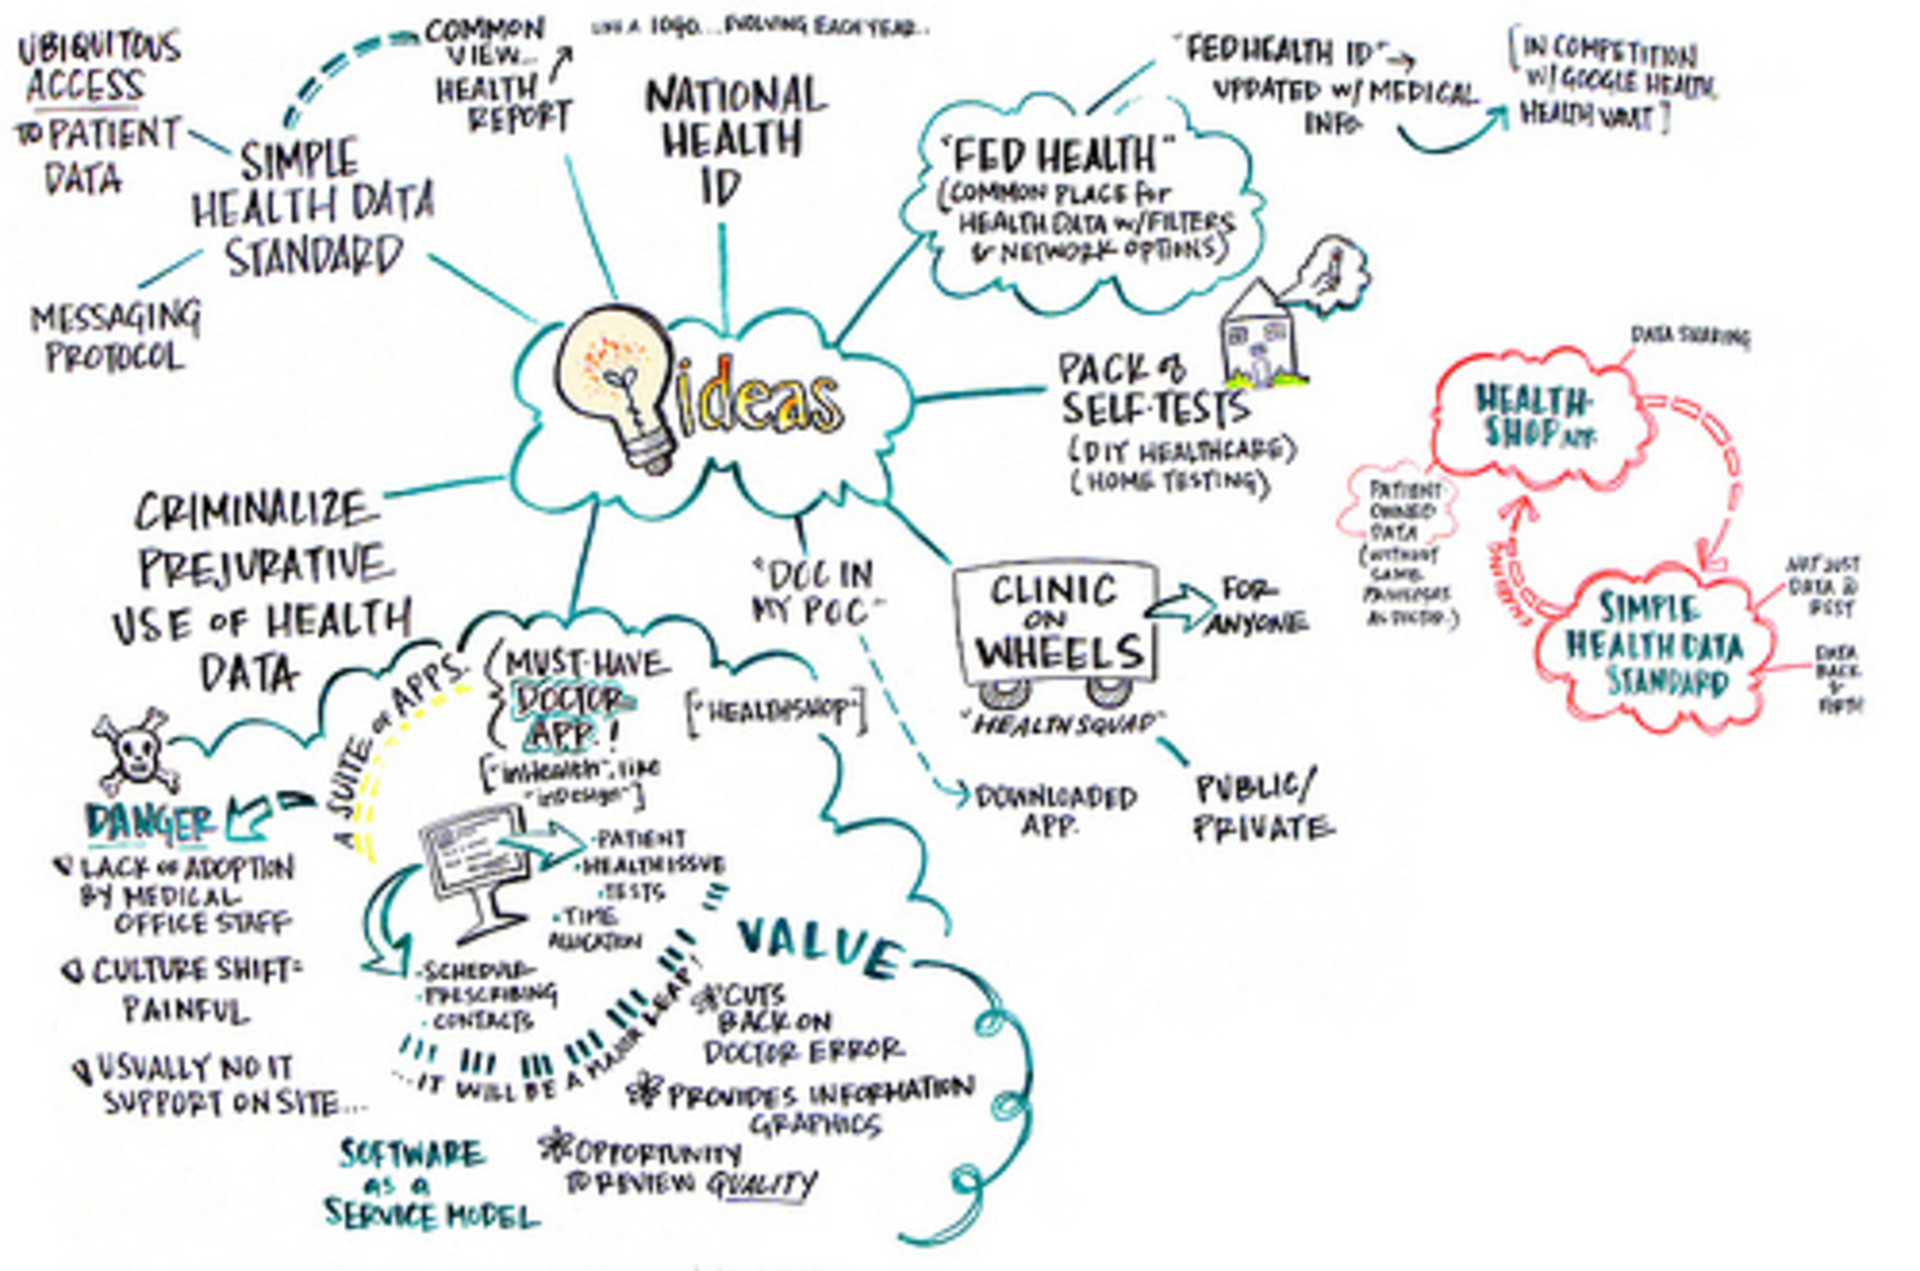 UBIQUITOUS
ACCESS
TO PATIENT
DATA
SIMPLE
HEALTH DATA
STANDARD
MESSAGING
PROTOCOL
COMMON
VIEW...
HEALTH
REPORT
LIKE A 1040... EVOLVING EACH YEAR..
NATIONAL
HEALTH
ID
"FED HEALTH"
(COMMON PLACE for
HEALTH DATA w/FILTERS
& NETWORK OPTIONS)
"FED HEALTH ID"
UPDATED w/ MEDICAL
INFO
[IN COMPETITION
W/ GOOGLE HEALTH,
HEALTH VAULT]
ideas
PACK of
SELF-TESTS
(DIY HEALTHCARE)
(HOME TESTING)
CLINIC
ON
WHEELS
"HEALTH SQUAD"
FOR
ANYONE
PUBLIC/
PRIVATE
"DOC IN
MY POC"
DOWNLOADED
APP.
CRIMINALIZE
PREJURATIVE
USE OF HEALTH
DATA
A SUITE OF APPS.
MUST-HAVE
DOCTOR
APP.!
["inHealth", like
"inDesign"]
["HEALTHSHOP"]
• PATIENT
• HEALTH ISSUE
• TESTS
• TIME
ALLOCATION
• SCHEDULE
• PRESCRIBING
• CONTACTS
...IT WILL BE A MAJOR LEAP!
DANGER
LACK of ADOPTION
BY MEDICAL
OFFICE STAFF
CULTURE SHIFT=
PAINFUL
USUALLY NO IT
SUPPORT ON SITE...
SOFTWARE
as a
SERVICE MODEL
VALUE
CUTS
BACK ON
DOCTOR ERROR
PROVIDES INFORMATION
GRAPHICS
OPPORTUNITY
TO REVIEW QUALITY
DATA SHARING
HEALTH-
SHOP APP.
PATIENT
OWNED
DATA
(WITHOUT
SAME
AS DOCTOR.)
SIMPLE
HEALTH DATA
STANDARD
NOT JUST
DATA @
REST
DATA
BACK
&
FORTH